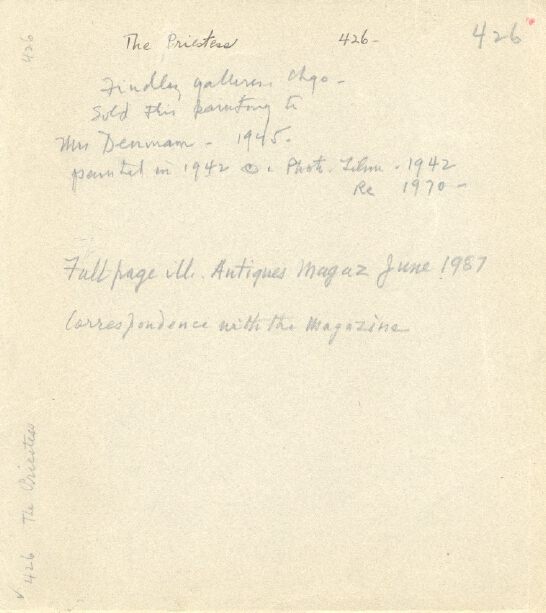 426
The Priestess 426-
426
Findlay galleries Chgo -
Sold this painting to
Mrs Denman - 1945.
painted in 1942 © . Phot. . 1942
Re 1970 -
Full page ill. Antiques Magaz June 1987
Correspondence with the Magazine
426 The Priestess